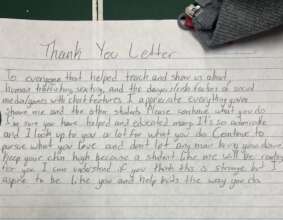 Thank You Letter
To everyone that helped teach and show us about
human trafficking, sexting, and the dangers/risk factors on social
media/games with chat features. I appreciate everything you've
shown me and the other students. Please continue what you do
I'm sure you have helped and educated many. It's so admirable
and I look up to you a lot for what you do. Continue to
pursue what you love and don't let any one bring you down
keep your chin high because a student like me will be rooting
for you. I can understand if you think this is strange but I
aspire to be like you and help kids the way you do.